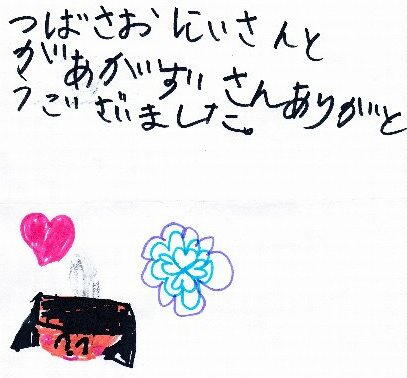 つばさおにいさんと
があがずいさんありがと
うございました。